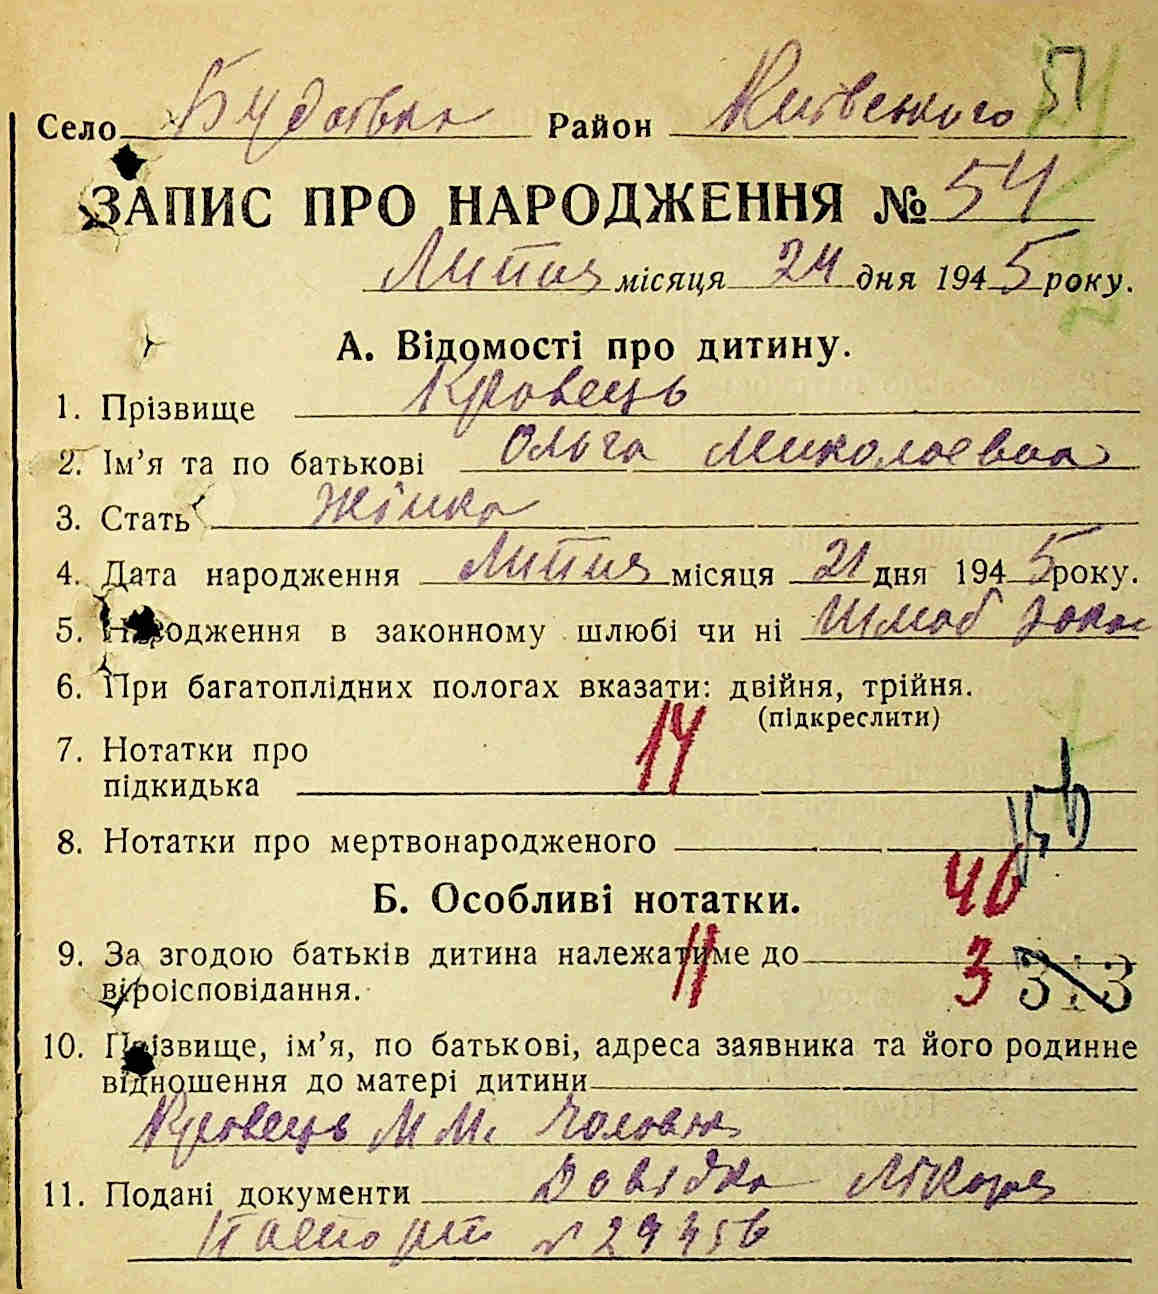 Село Будаївка Район Київського 51
ЗАПИС ПРО НАРОДЖЕННЯ № 54
Липня місяця 24 дня 1945 року.
А. Відомості про дитину.
1. Прізвище Кровець
2. Ім’я та по батькові Ольга Миколаевна
3. Стать Жінка
4. Дата народження Липня місяця 21 дня 1945 року.
5. Народження в законному шлюбі чи ні Шлюб
6. При багатоплідних пологах вказати: двійня, трійня.
(підкреслити)
7. Нотатки про 14
підкидька
8. Нотатки про мертвонародженого
46
Б. Особливі нотатки.
9. За згодою батьків дитина належатиме до 3 313
віроісповідання. 11
10. Прізвище, ім’я, по батькові, адреса заявника та його родинне
відношення до матері дитини
Кровець М М. чоловік
11. Подані документи Довідка Лікаря
Паспорт № 29456